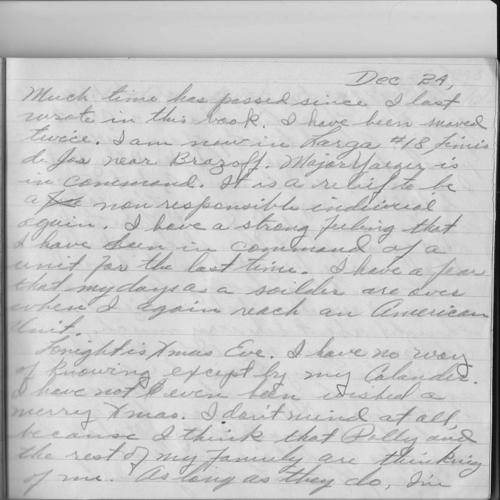 Dec 24,
Much time has passed since I last
wrote in this book. I have been moved
twice. I am now in Larga #18 Timis
de Jos near Brazoff. Major Yaeger is
in command. It is a relief to be
a non responsible indivirial
again. I have a strong feeling that
I have been in command of a
unit for the last time. I have a fear
that my days a a soilder are over
when I again reach an American
Unit.
Tonight is Xmas Eve. I have no way
of knowing except by my Calander.
I have not even been wished a
merry Xmas. I don't mind at all,
because I think that Polly and
the rest of my family are thinking
of me. As long as they do, I'm